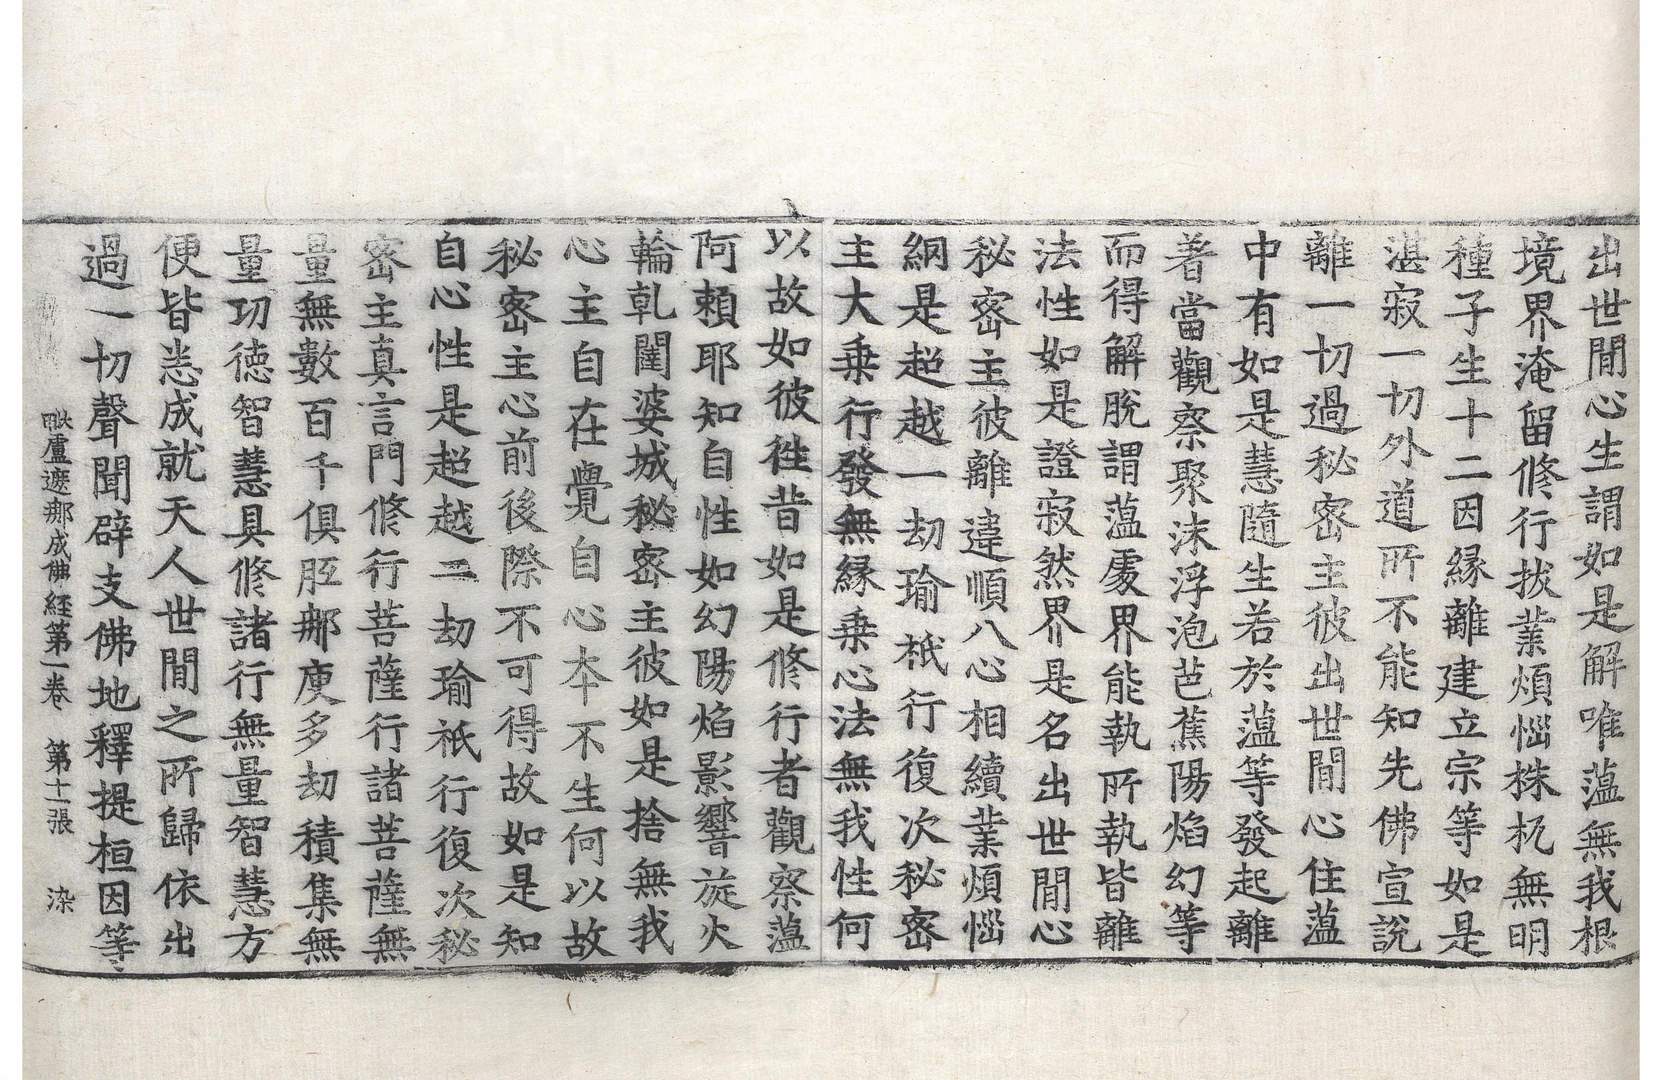 出世閒心生謂如是解唯蕰無我根
境界淹留修行拔業煩惱株杌無明
種子生十二因縁離建立宗等如是
湛寂一切外道所不能知先佛宣說
離一切過秘密主彼出世閒心住蕰
中有如是慧隨生若於蕰等發起離
著當觀察聚沫浮泡芭蕉陽焰幻等
而得解脫謂蕰處界能執所執皆離
法性如是證寂然界是名出世閒心
秘密主彼離違順八心相續業煩惱
網是超越一劫瑜祇行復次秘密
主大乗行發無縁乗心法無我性何
以故如彼徃昔如是修行者觀察蕰
阿頼耶知自性如幻陽焰影響旋火
輪乹闥婆城秘密主彼如是捨無我
心主自在覺自心夲不生何以故
秘密主心前後際不可得故如是知
自心性是超越二劫瑜祇行復次秘
密主真言門修行菩薩行諸菩薩無
量無數百千俱胝那庾多劫積集無
量功徳智慧具修諸行無量智慧方
便皆悉成就天人世閒之所歸依出
過一切聲聞辟支佛地釋提桓因等
毗盧遮那成佛経第一卷 第十一張 染